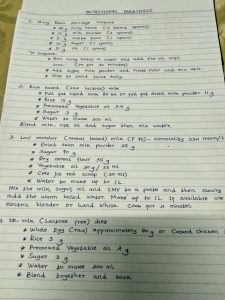 NUTRITIONAL PORRIDGES
1. Mung bean porridge
* 25 g mung beans (2 spoons)
* 10 g milk powder (2 spoons)
* 5 g maize flour (1 spoon)
* 10 g sugar (2 spoons)
* 10 g oil (2 spoons)
To prepare
- Boil mung beans in water and add the oil
- Add sugar milk powder and maize flour and mix well.
- Give to child twice daily
2. Rice based (low lactose) milk
* Full fat liquid milk 85 ml or full fat dried milk powder 11 g
* Rice 12 g
* Precooked vegetable oil 3.5 g
* Sugar 3 g
* Water to make 200 ml
Blend milk, rice oil and sugar then mix water.
3. Low osmolar (cereal based) milk (F-75) - osmolality 350 mosm/L
* Dried skim milk powder 25 g
* Sugar 70 g
* Dry cereal flour 35 g
* Vegetable oil 30 g / 35 ml
* CMV 1/2 red scoop (20 ml)
* Water to make up to 1L.
Mix the milk, sugar, oil and CMV to a paste and then slowly
Add the warm boiled water. Make up to 1L. If available use
electric blender or hand whisk. Cook for 4 minutes
No milk (lactose free) diet
* Whole egg (raw) approximately 64 g or cooked chicken
* Rice 3 g
* Precooked vegetable oil 4 g
* Sugar 3 g
* Water to make 200 ml
* Blend together and cook